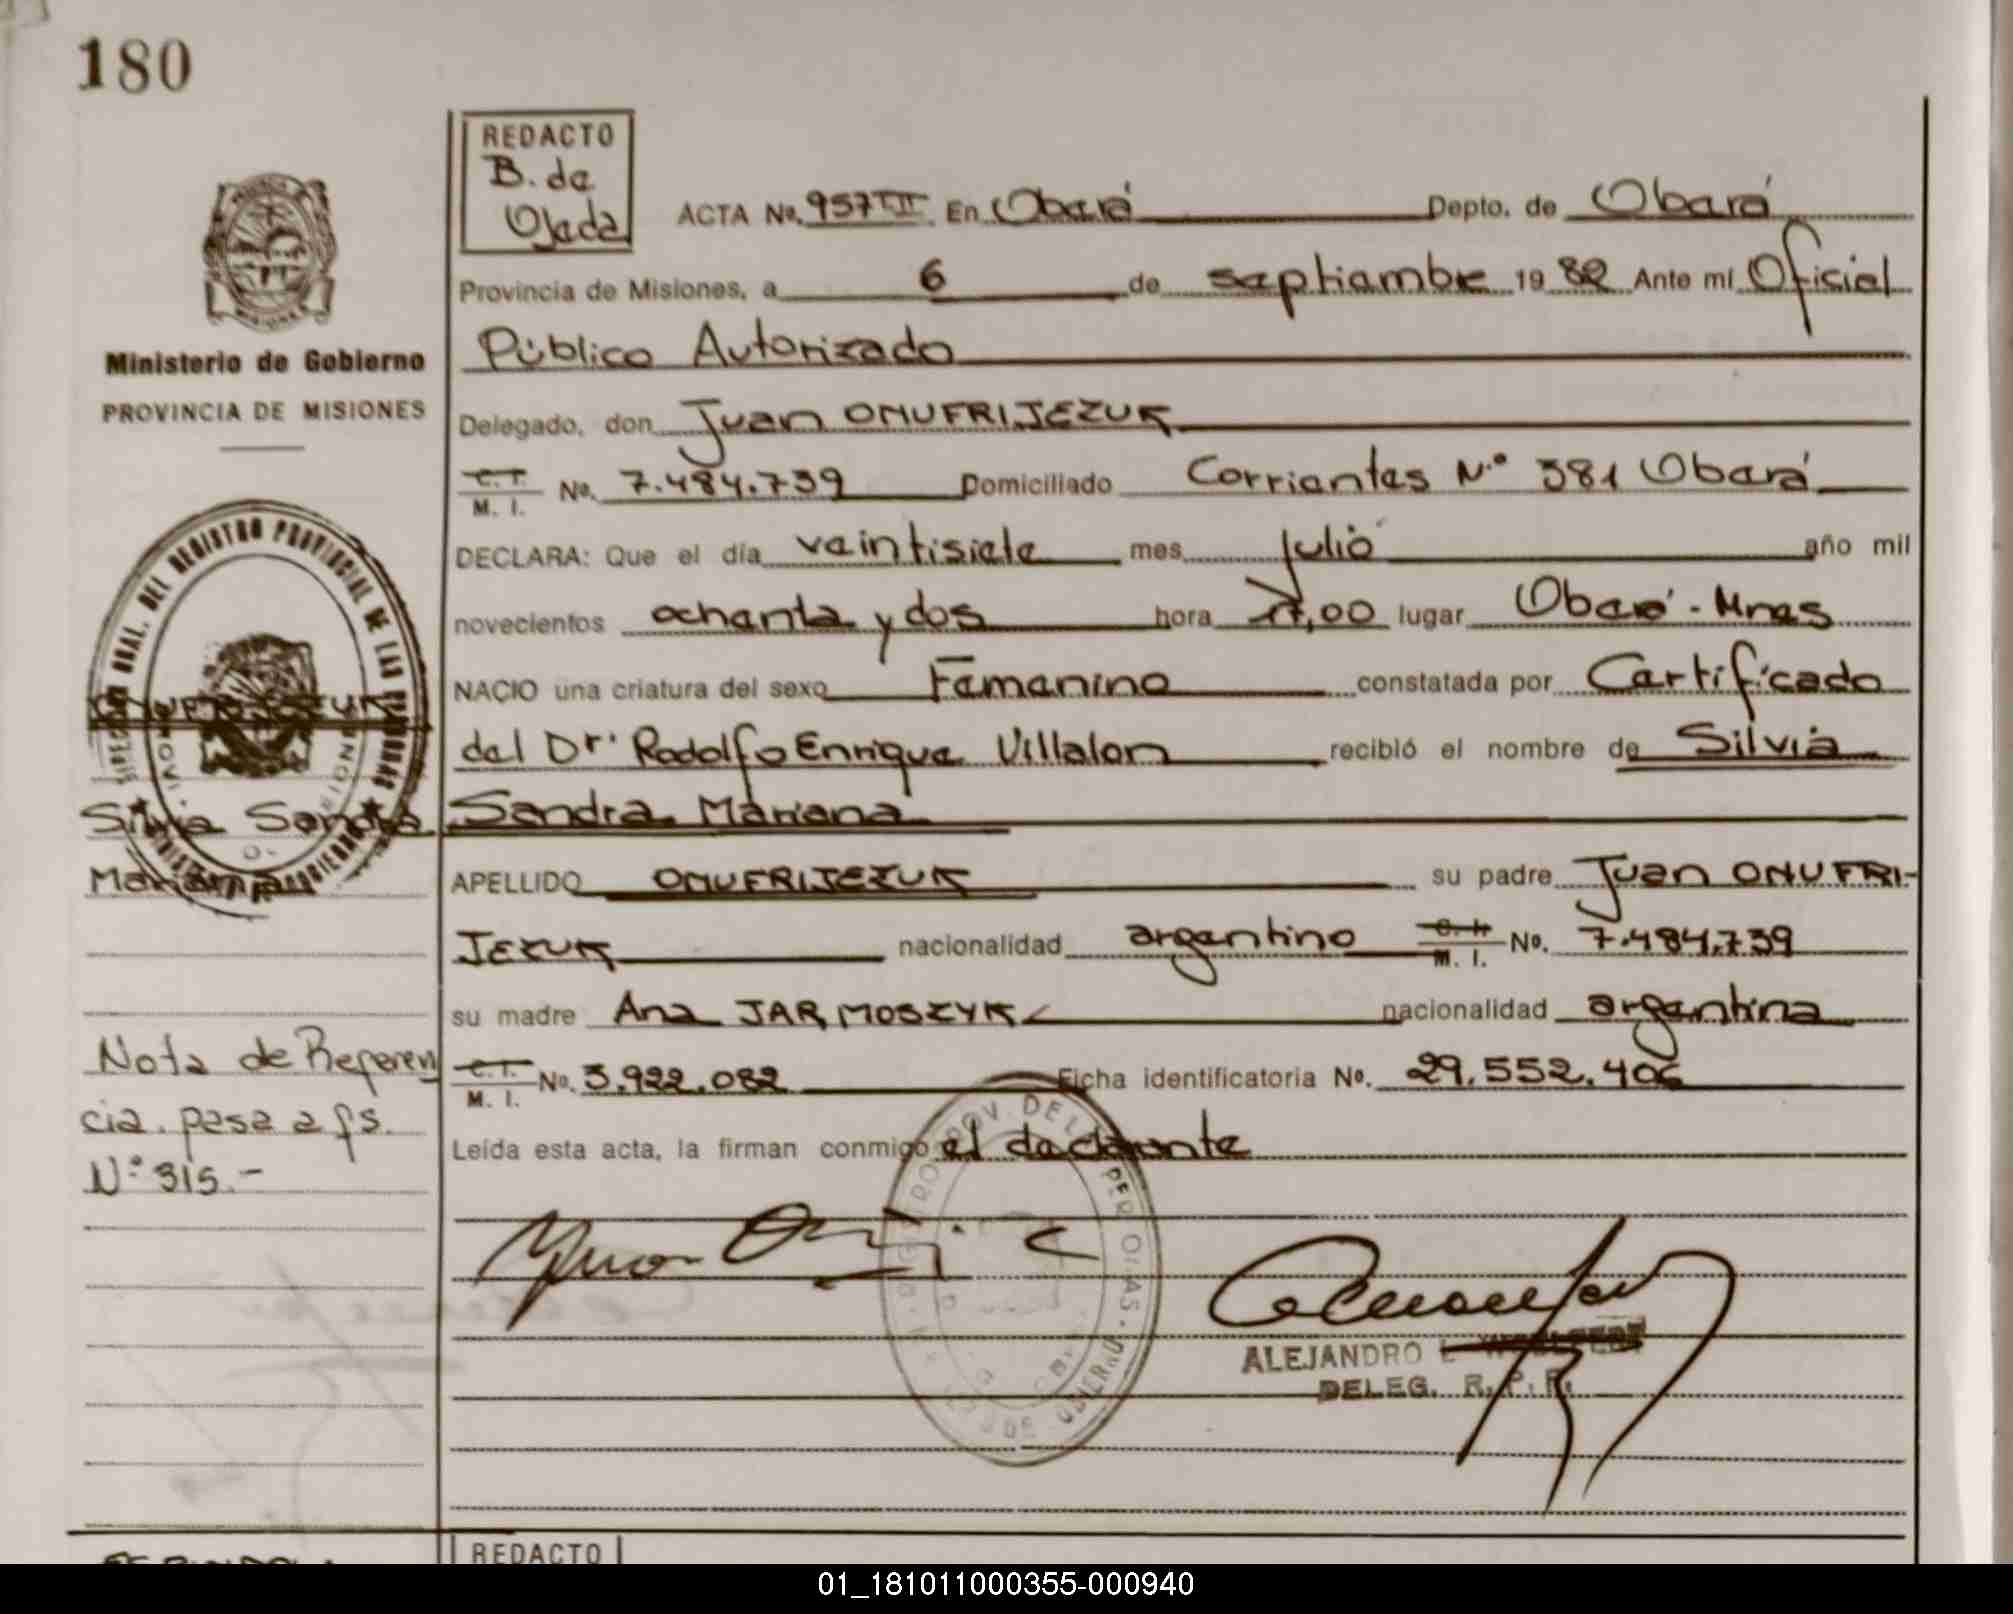 180
REDACTO
B. de
Ojeda
ACTA No. 957 TII En Oberá Depto. de Oberá
Provincia de Misiones, a 6 de septiembre 19 82 Ante mí Oficial
Público Autorizado
Ministerio de Gobierno
PROVINCIA DE MISIONES
Delegado, don Juan ONUFRIJEZUK
C.I. M. I. No. 7.484.739 Domiciliado Corrientes N.º 381 Oberá
DECLARA: Que el día veintisiete mes julio año mil
novecientos ochenta y dos hora 17,00 lugar Oberá - Mnes
NACIO una criatura del sexo Femenino constatada por Certificado
del Dr. Rodolfo Enrique Villalon recibió el nombre de Silvia
Sandra Mariana
APELLIDO ONUFRIJEZUK su padre Juan ONUFRI-
JEZUK nacionalidad argentino C.I. M. I. No. 7.484.739
su madre Ana JARMOSZYK nacionalidad argentina
C.I. M. I. No. 3.922.082 Ficha identificatoria No. 29.552.406
Leída esta acta, la firman conmigo el declarante
GRAL. DEL REGISTRO PROVINCIAL DE LAS PERSONAS
ONUFRIJEZUK
Silvia Sandra
Mariana
Nota de Referen
cia. pasa a fs.
N.º 315.-
ALEJANDRO
DELEG. R. P. P.
REDACTO
01_181011000355-000940